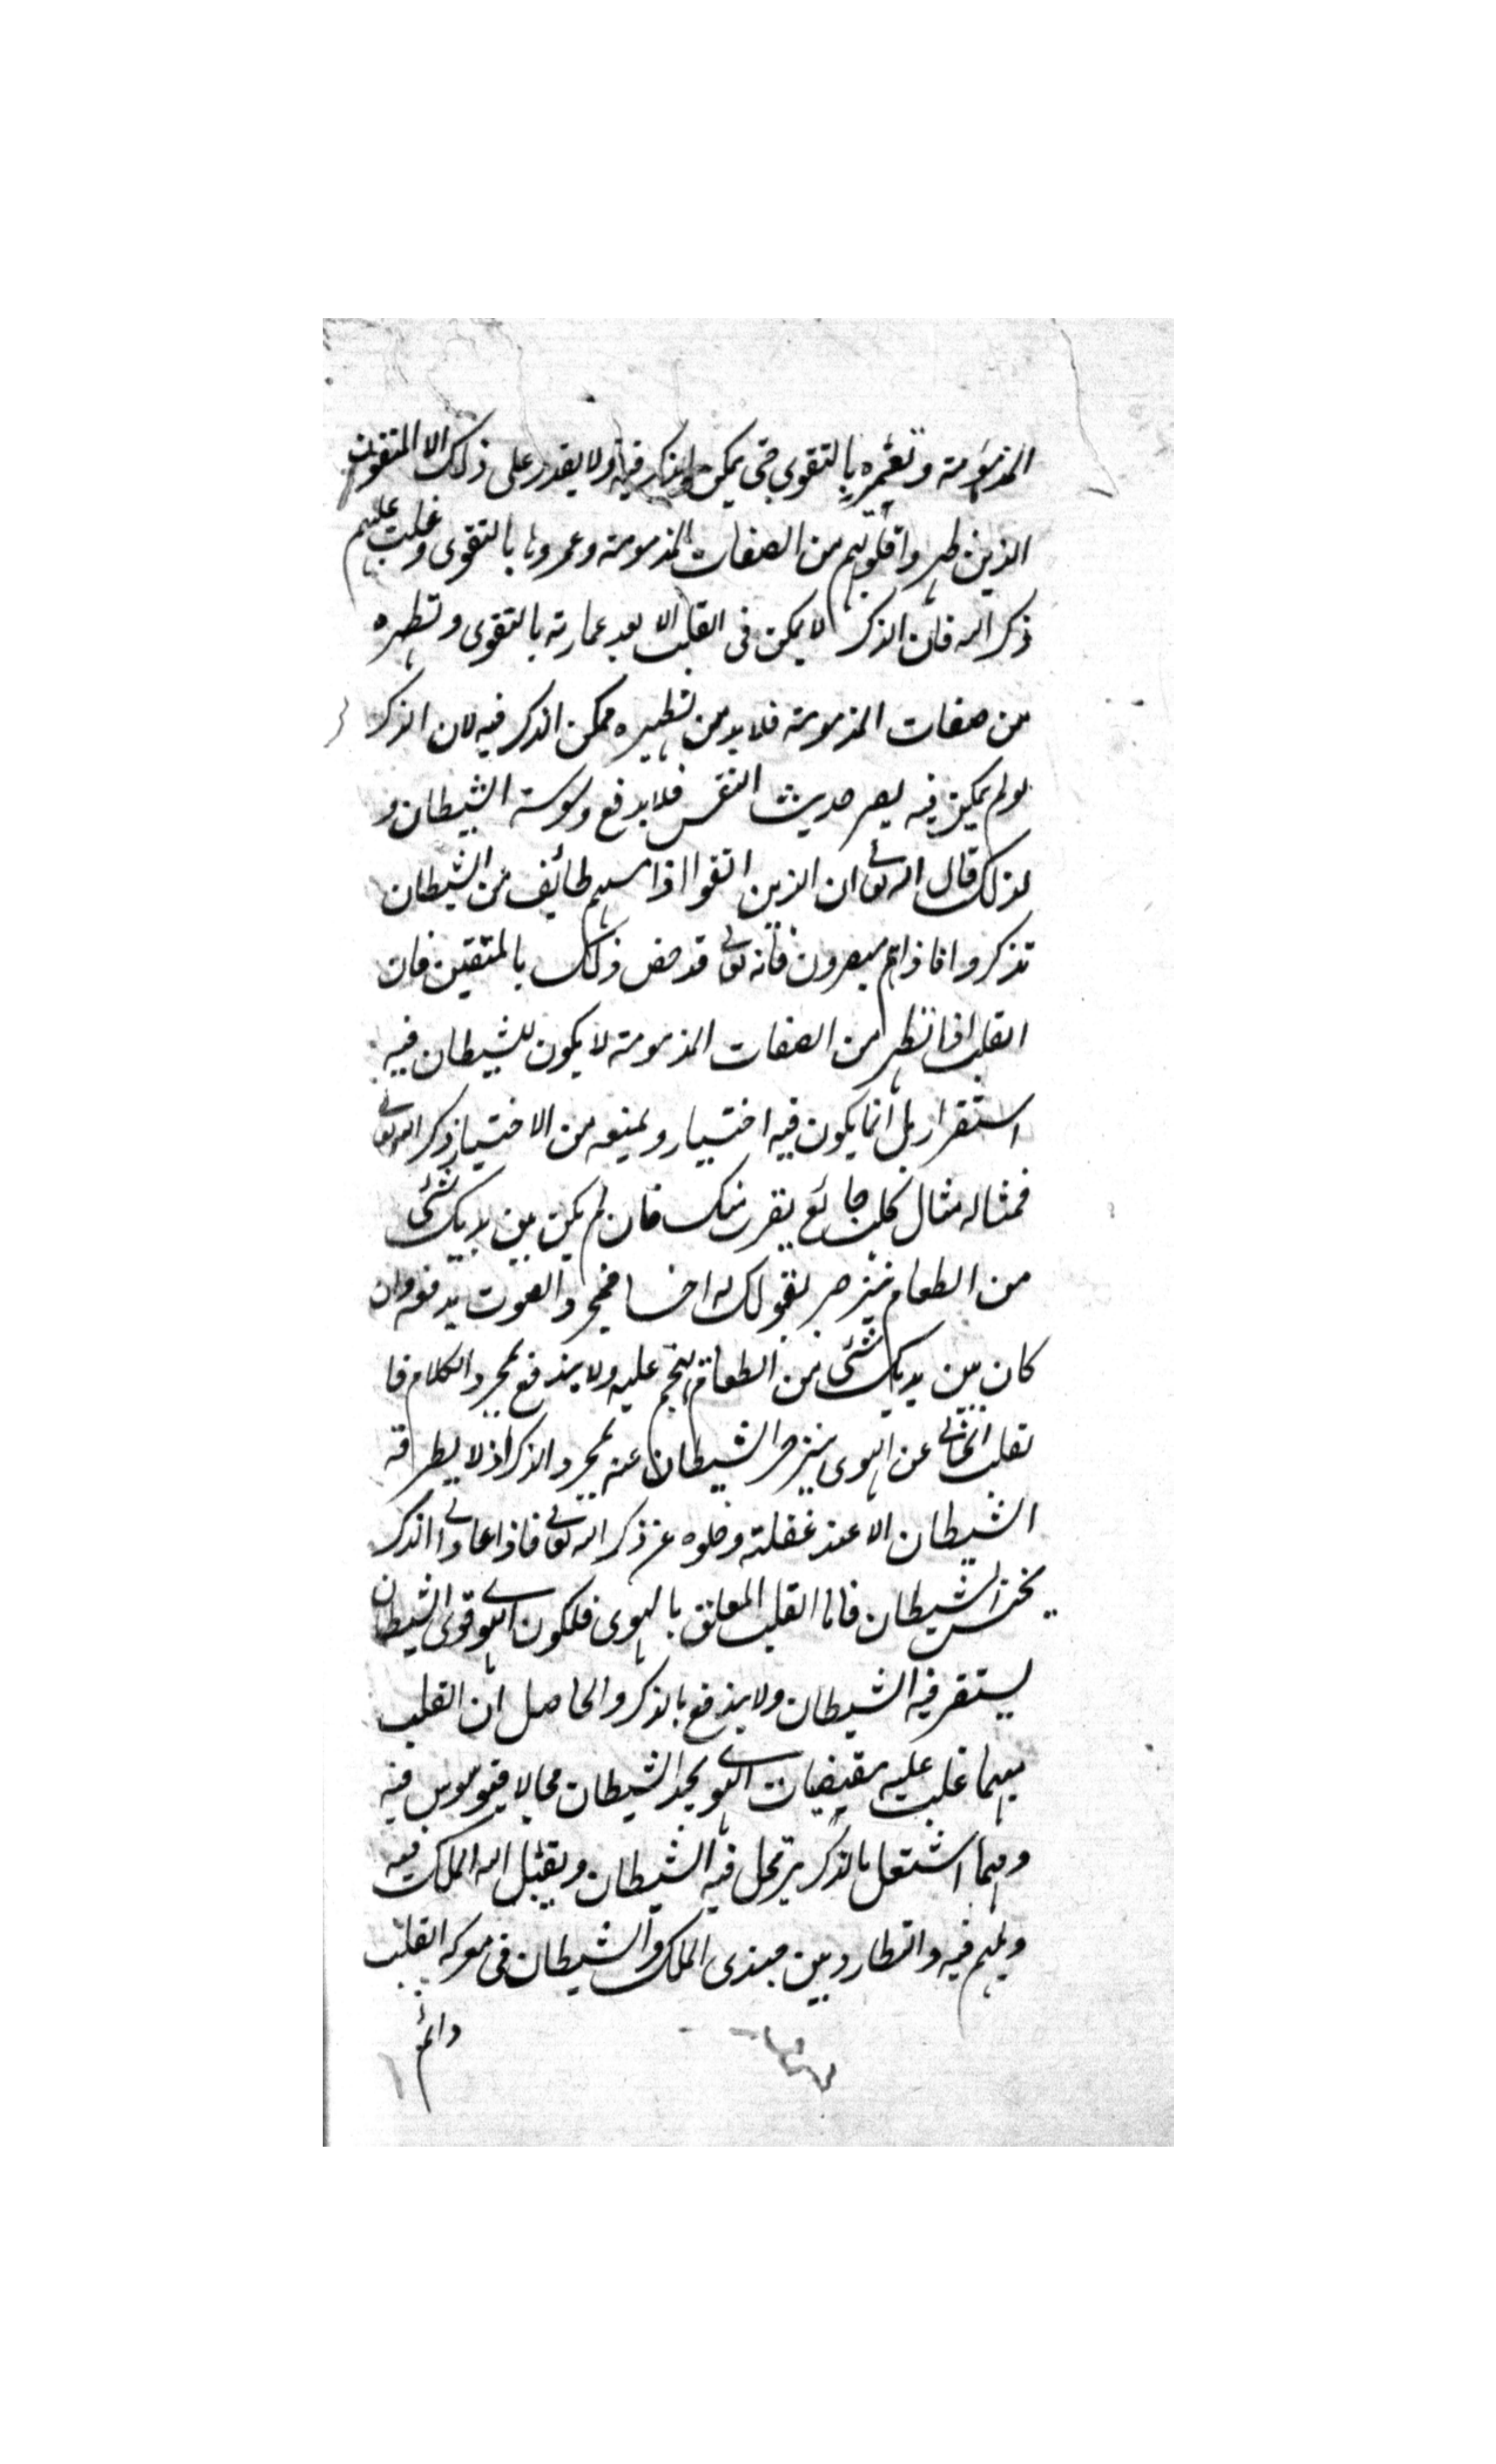 المذمومة وتعميره بالتقوى حتى يمكن الذكر فيه ولا يقدر على ذلك الا المتقون
الذين طهروا قلوبهم من الصفات المذمومة وعمروها بالتقوى وغلب عليهم
ذكر الله فان الذكر لا يمكن فى القلب الا بعد عمارته بالتقوى وتطهره
من صفات المذمومة فلا بد من تطهيره ممكن الذكر فيه لان الذكر
لو لم يمكن فيه يصر حديث النفس فلا يدفع وسوسة الشيطان و
لذلك قال الله تعالى ان الذين اتقوا اذا مسهم طائف من الشيطان
تذكروا فاذا هم مبصرون فانه تعالى قد خص ذلك بالمتقين فان
القلب اذا تطهر من الصفات المذمومة لا يكون للشيطان فيه
استقرار بل انما يكون فيه اختيار ويمنعه من الاختيار ذكر الله تعالى
فمثاله مثال كلب جائع يقرب منك فان لم يكن بين يديك شئ
من الطعام ينزجر بقولك له اخسا فمجرد الصوت يدفعه وان
كان بين يديك شئ من الطعام يهجم عليه ولا يندفع بمجرد الكلام فا
لقلب الخالى عن الهوى ينزجر الشيطان عنه بمجرد الذكر اذ لا يطرقه
الشيطان الا عند غفلته وخلوه عن ذكر الله تعالى فاذا عاد الى الذكر
يخنس الشيطان فاما القلب المعلق بالهوى فلكون الهوى قوى الشيطان
يستقر فيه الشيطان ولا يندفع بالذكر والحاصل ان القلب
مهما غلب عليه مقتضيات الهوى يجد الشيطان مجالا فيوسوس فيه
ومهما اشتغل بالذكر يرتحل فيه الشيطان ويقبل اليه الملك فيه
ويلهم فيه والتطارد بين جندى الملك والشيطان فى معركة القلب
دائم